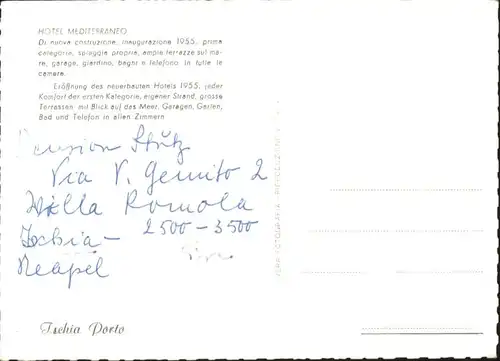 HOTEL MEDITERRANEO
Di nuova costruzione, inaugurazione 1955, prima
categoria, spiaggia propria, ampie terrazze sul ma-
re, garage, giardino, bagni e telefono in tutte le
camere.
Eröffnung des neuerbauten Hotels 1955, jeder
Komfort der ersten Kategorie, eigener Strand, grosse
Terrassen mit Blick auf das Meer, Garagen, Garten,
Bad und Telefon in allen Zimmern
Pension Stütz
Via V. Gemito 2
Willa Romola
Ischia - 2500-3500
Neapel
Ischia Porto